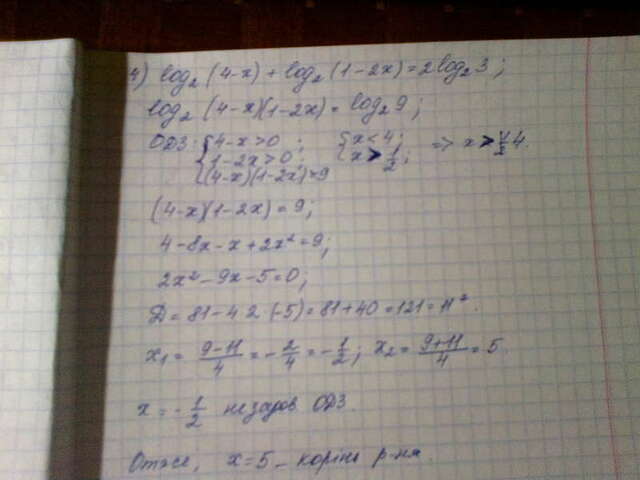 4) log₂ (4-x) + log₂ (1-2x) = 2log₂3 ;
log₂ (4-x)(1-2x) = log₂ 9 ;
ОДЗ: { 4-x>0 ; { x<4 ; => x >
1-2x>0 ; x > 1/2 ;
(4-x)(1-2x)=9
(4-x)(1-2x) = 9 ;
4-8x-x+2x²=9 ;
2x²-9x-5=0 ;
D = 81-4·2·(-5) = 81+40 = 121 = 11².
x₁ = (9-11)/4 = -2/4 = -1/2 ; x₂ = (9+11)/4 = 5.
x = -1/2 не задов. ОДЗ.
Отже, x=5 - корінь р-ня.